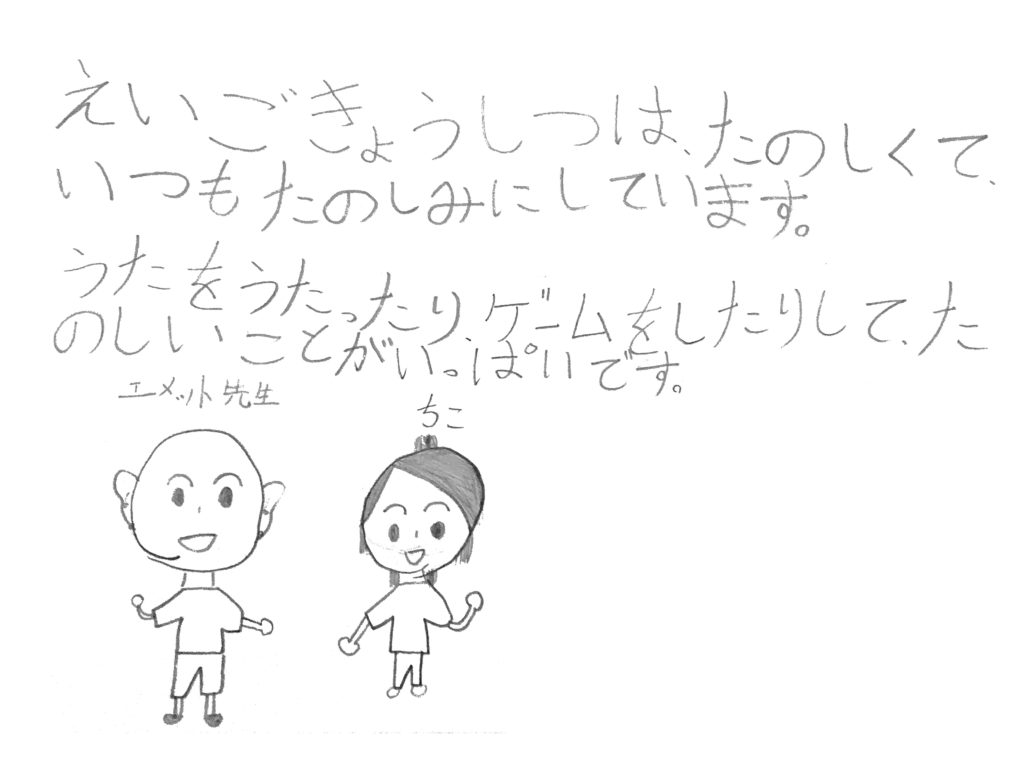 えいごきょうしつは、たのしくて、
いつもたのしみにしています。
うたをうたったり、ゲームをしたりして、た
のしいことがいっぱいです。
エーメット先生
ちこ